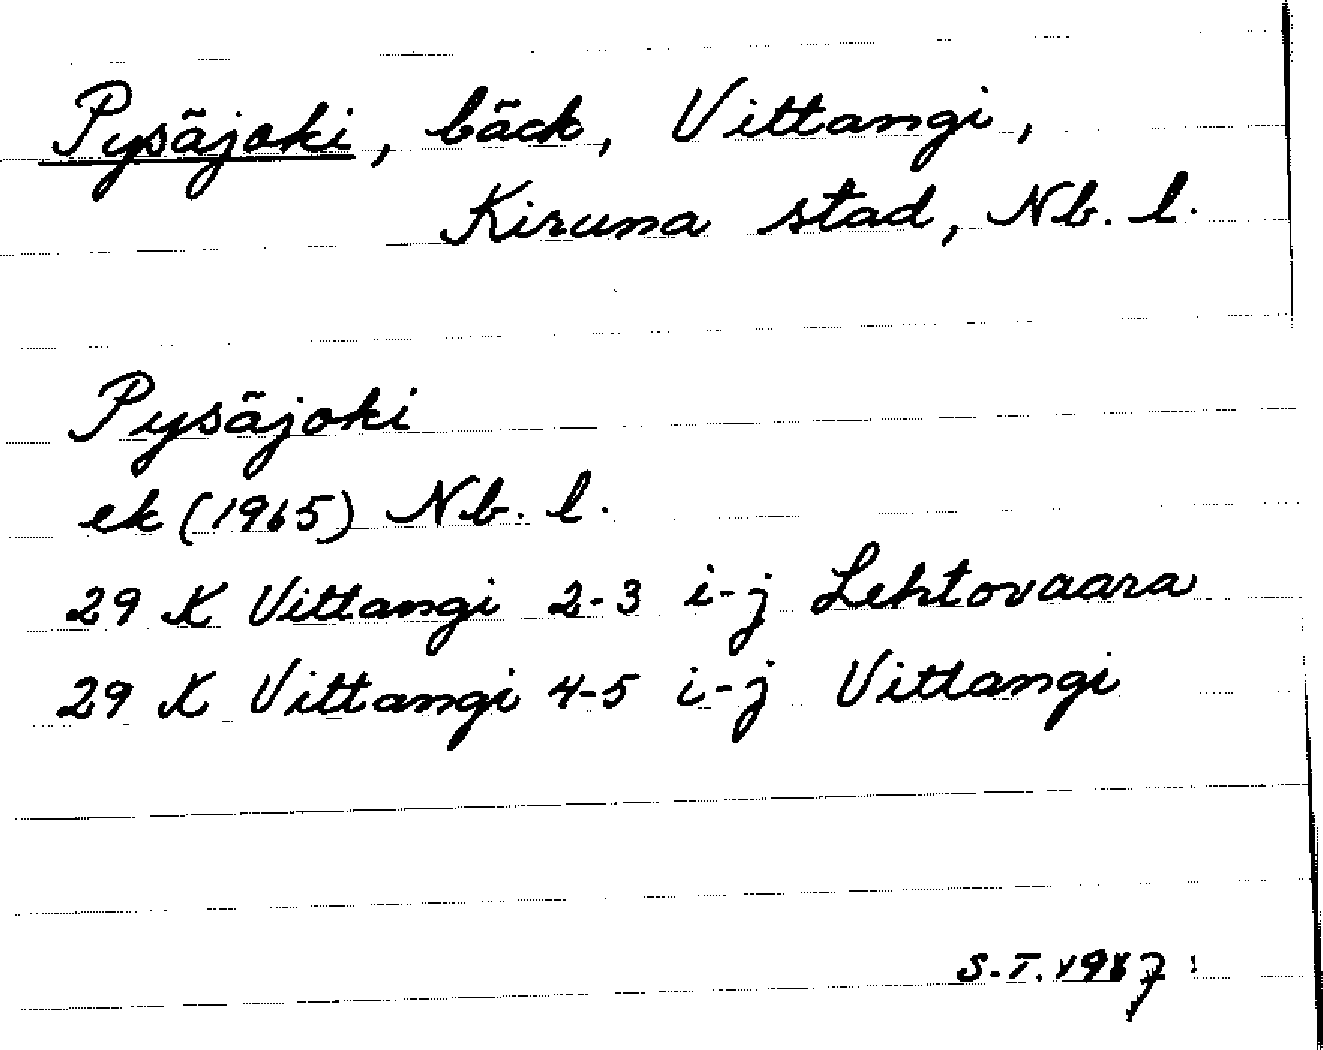 Pysäjoki, bäck, Vittangi,
Kiruna stad, Nb. l.
Pysäjoki
ek (1965) Nb. l.
29 K Vittangi 2-3 i-j Lehtovaara
29 K Vittangi 4-5 i-j Vittangi
S.T.